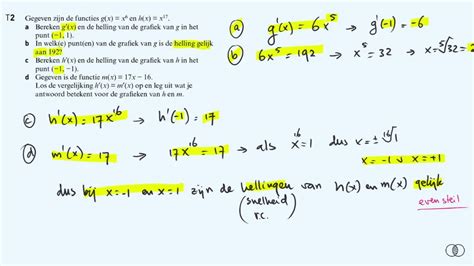 T2 Gegeven zijn de functies g(x) = x⁶ en h(x) = x¹⁷.
a Bereken g'(x) en de helling van de grafiek van g in het
punt (−1, 1).
b In welk(e) punt(en) van de grafiek van g is de helling gelijk
aan 192?
c Bereken h'(x) en de helling van de grafiek van h in het
punt (−1, −1).
d Gegeven is de functie m(x) = 17x − 16.
Los de vergelijking h'(x) = m'(x) op en leg uit wat je
antwoord betekent voor de grafieken van h en m.
a g'(x) = 6x⁵ → g'(−1) = −6
b 6x⁵ = 192 → x⁵ = 32 → x = ⁵√32 =
c h'(x) = 17x¹⁶ → h'(−1) = 17
d m'(x) = 17 → 17x¹⁶ = 17 → als x¹⁶ = 1 dus x = ± ¹⁶√1
x = −1 ∨ x = +1
dus bij x = −1 en x = 1 zijn de hellingen van h(x) en m(x) gelijk
(snelheid
r.c.)
even steil